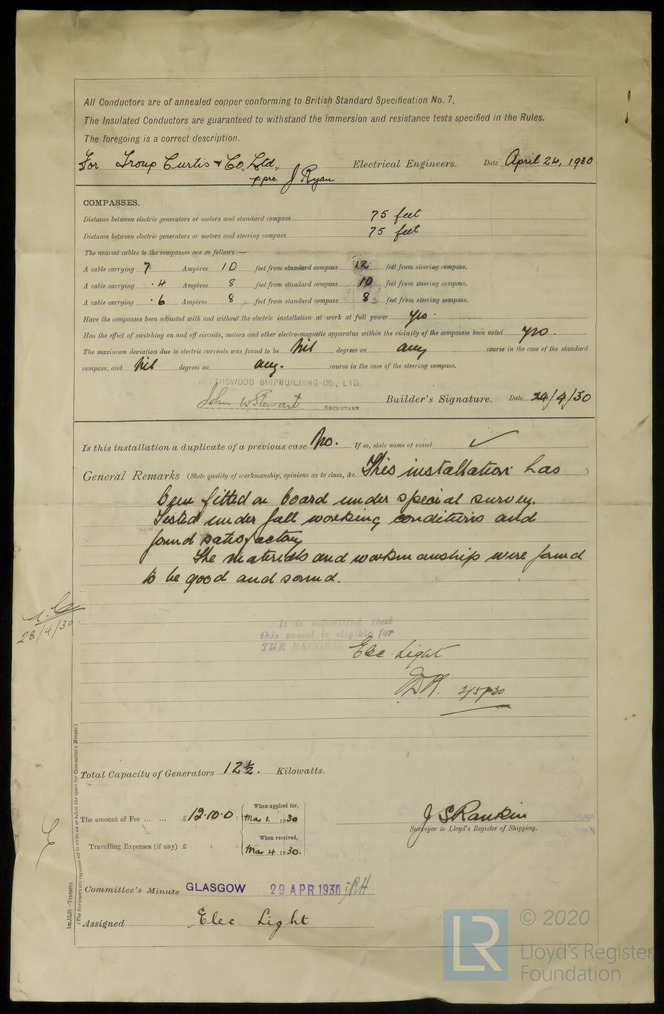 All Conductors are of annealed copper conforming to British Standard Specification No. 7.
The Insulated Conductors are guaranteed to withstand the immersion and resistance tests specified in the Rules.
The foregoing is a correct description.
For Troup Curtis & Co. Ltd. Electrical Engineers. Date April 24, 1930
J Ryan
COMPASSES.
Distance between electric generators or motors and standard compass 75 feet
Distance between electric generators or motors and steering compass 75 feet
The nearest cables to the compasses are as follows:—
A cable carrying 7 Ampères 10 feet from standard compass 12 feet from steering compass.
A cable carrying .4 Ampères 8 feet from standard compass 10 feet from steering compass.
A cable carrying .6 Ampères 8 feet from standard compass 8 feet from steering compass.
Have the compasses been adjusted with and without the electric installation at work at full power yes.
Has the effect of switching on and off circuits, motors and other electro-magnetic apparatus within the vicinity of the compasses been noted yes.
The maximum deviation due to electric currents was found to be Nil degrees on any course in the case of the standard
compass, and Nil degrees on any. course in the case of the steering compass.
SHIPBUILDING CO., LTD.
John W Stewart SECRETARY Builder's Signature. Date 24/4/30
Is this installation a duplicate of a previous case No. If so, state name of vessel
General Remarks (State quality of workmanship, opinions as to class, &c. This installation has
been fitted on board under special survey.
Tested under full working conditions and
found satisfactory
The materials and workmanship were found
to be good and sound.
28/4/30
It is submitted that
this vessel is eligible for
THE RECORD Elec. Light
2/5/30
Total Capacity of Generators 12½. Kilowatts.
The amount of Fee ... ... £12.10.0 When applied for, Mar 1. 1930
J S Rankin
Surveyor to Lloyd's Register of Shipping.
Travelling Expenses (if any) £ : : When received, Mar 4 1930.
Committee's Minute GLASGOW 29 APR 1930
Assigned Elec. Light
(The Surveyors are requested not to write on or below the space for Committee's Minute.)
LR © 2020
Lloyd's Register
Foundation